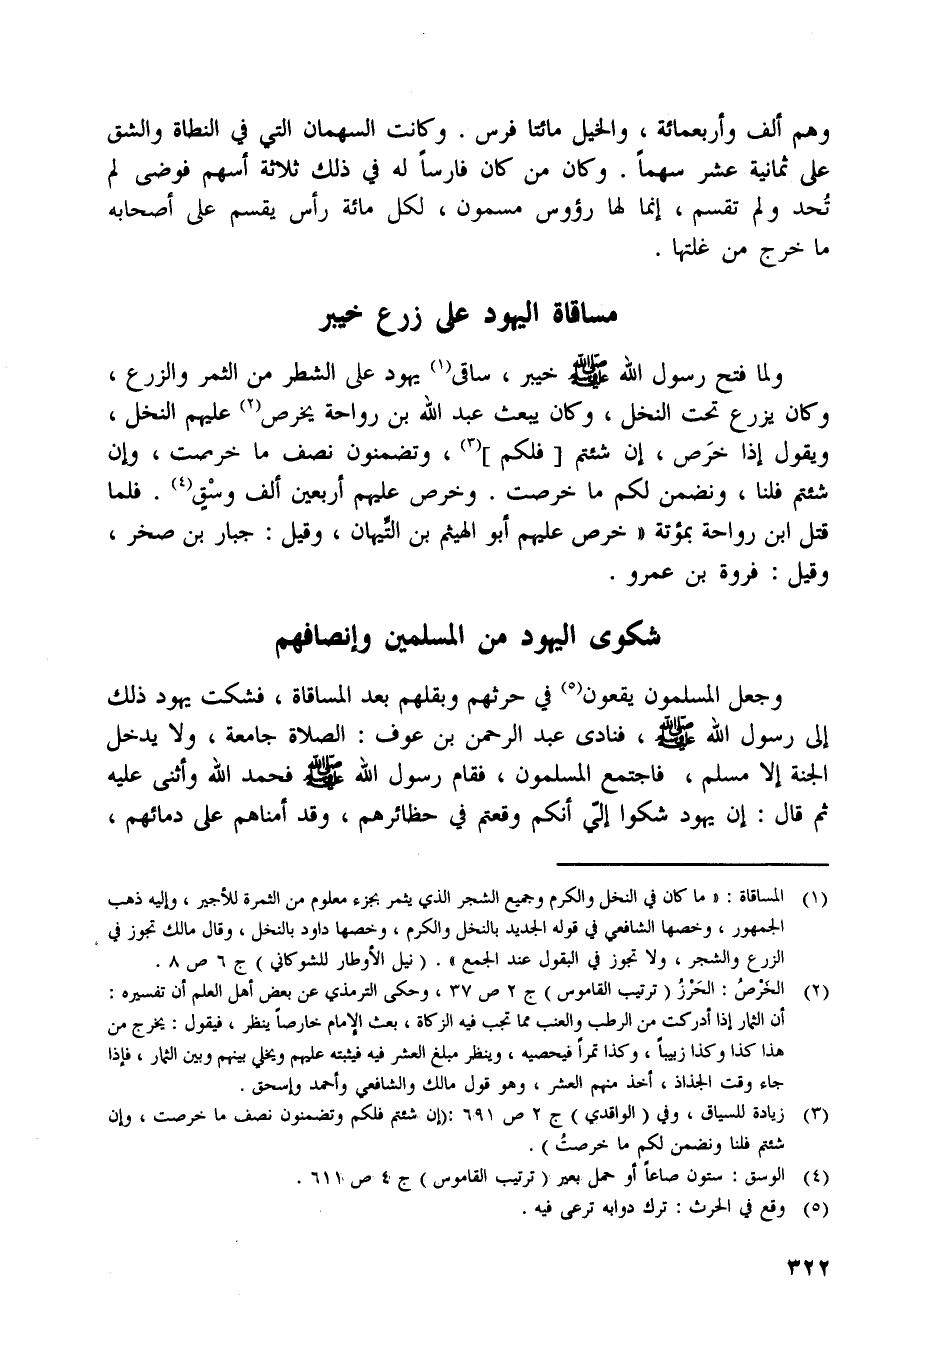 وهم ألف وأربعمائة ، والخيل مائتا فرس . وكانت السهمان التي في النطاة والشق
على ثمانية عشر سهماً . وكان من كان فارساً له في ذلك ثلاثة أسهم فوضى لم
تُحد ولم تقسم ، إنما لها رؤوس مسمون ، لكل مائة رأس يقسم على أصحابه
ما خرج من غلتها .
مساقاة اليهود على زرع خيبر
ولما فتح رسول الله ﷺ خيبر ، ساقى(١) يهود على الشطر من الثمر والزرع ،
وكان يزرع تحت النخل ، وكان يبعث عبد الله بن رواحة يخرص(٢) عليهم النخل ،
ويقول إذا خرَص ، إن شئتم [ فلكم ](٣) ، وتضمنون نصف ما خرصت ، وإن
شئتم فلنا ، ونضمن لكم ما خرصت . وخرص عليهم أربعين ألف وسْقٍ(٤) . فلما
قتل ابن رواحة بمؤتة « خرص عليهم أبو الهيثم بن التَّيهان ، وقيل : جبار بن صخر ،
وقيل : فروة بن عمرو .
شكوى اليهود من المسلمين وإنصافهم
وجعل المسلمون يقعون(٥) في حرثهم وبقلهم بعد المساقاة ، فشكت يهود ذلك
إلى رسول الله ﷺ ، فنادى عبد الرحمن بن عوف : الصلاة جامعة ، ولا يدخل
الجنة إلا مسلم ، فاجتمع المسلمون ، فقام رسول الله ﷺ فحمد الله وأثنى عليه
ثم قال : إن يهود شكوا إليّ أنكم وقعتم في حظائرهم ، وقد أمناهم على دمائهم ،
(١) المساقاة : « ما كان في النخل والكرم وجميع الشجر الذي يثمر بجزء معلوم من الثمرة للأجير ، وإليه ذهب
الجمهور ، وخصها الشافعي في قوله الجديد بالنخل والكرم ، وخصها داود بالنخل ، وقال مالك تجوز في
الزرع والشجر ، ولا تجوز في البقول عند الجمع » . ( نيل الأوطار للشوكاني ) ج ٦ ص ٨ .
(٢) الخَرْصُ : الحَرْزُ ( ترتيب القاموس ) ج ٢ ص ٣٧ ، وحكى الترمذي عن بعض أهل العلم أن تفسيره :
أن الثمار إذا أدركت من الرطب والعنب مما تجب فيه الزكاة ، بعث الإمام خارصاً ينظر ، فيقول : يخرج من
هذا كذا وكذا زبيباً ، وكذا تمراً فيحصيه ، وينظر مبلغ العشر فيه فيثبته عليهم ويخلي بينهم وبين الثمار ، فإذا
جاء وقت الجذاذ ، أخذ منهم العشر ، وهو قول مالك والشافعي وأحمد وإسحق .
(٣) زيادة للسياق ، وفي ( الواقدي ) ج ٢ ص ٦٩١ :(إن شئتم فلكم وتضمنون نصف ما خرصت ، وإن
شئتم فلنا ونضمن لكم ما خرصتُ ) .
(٤) الوسق : ستون صاعاً أو حمل بعير ( ترتيب القاموس ) ج ٤ ص ٦١١ .
(٥) وقع في الحرث : ترك دوابه ترعى فيه .
٣٢٢